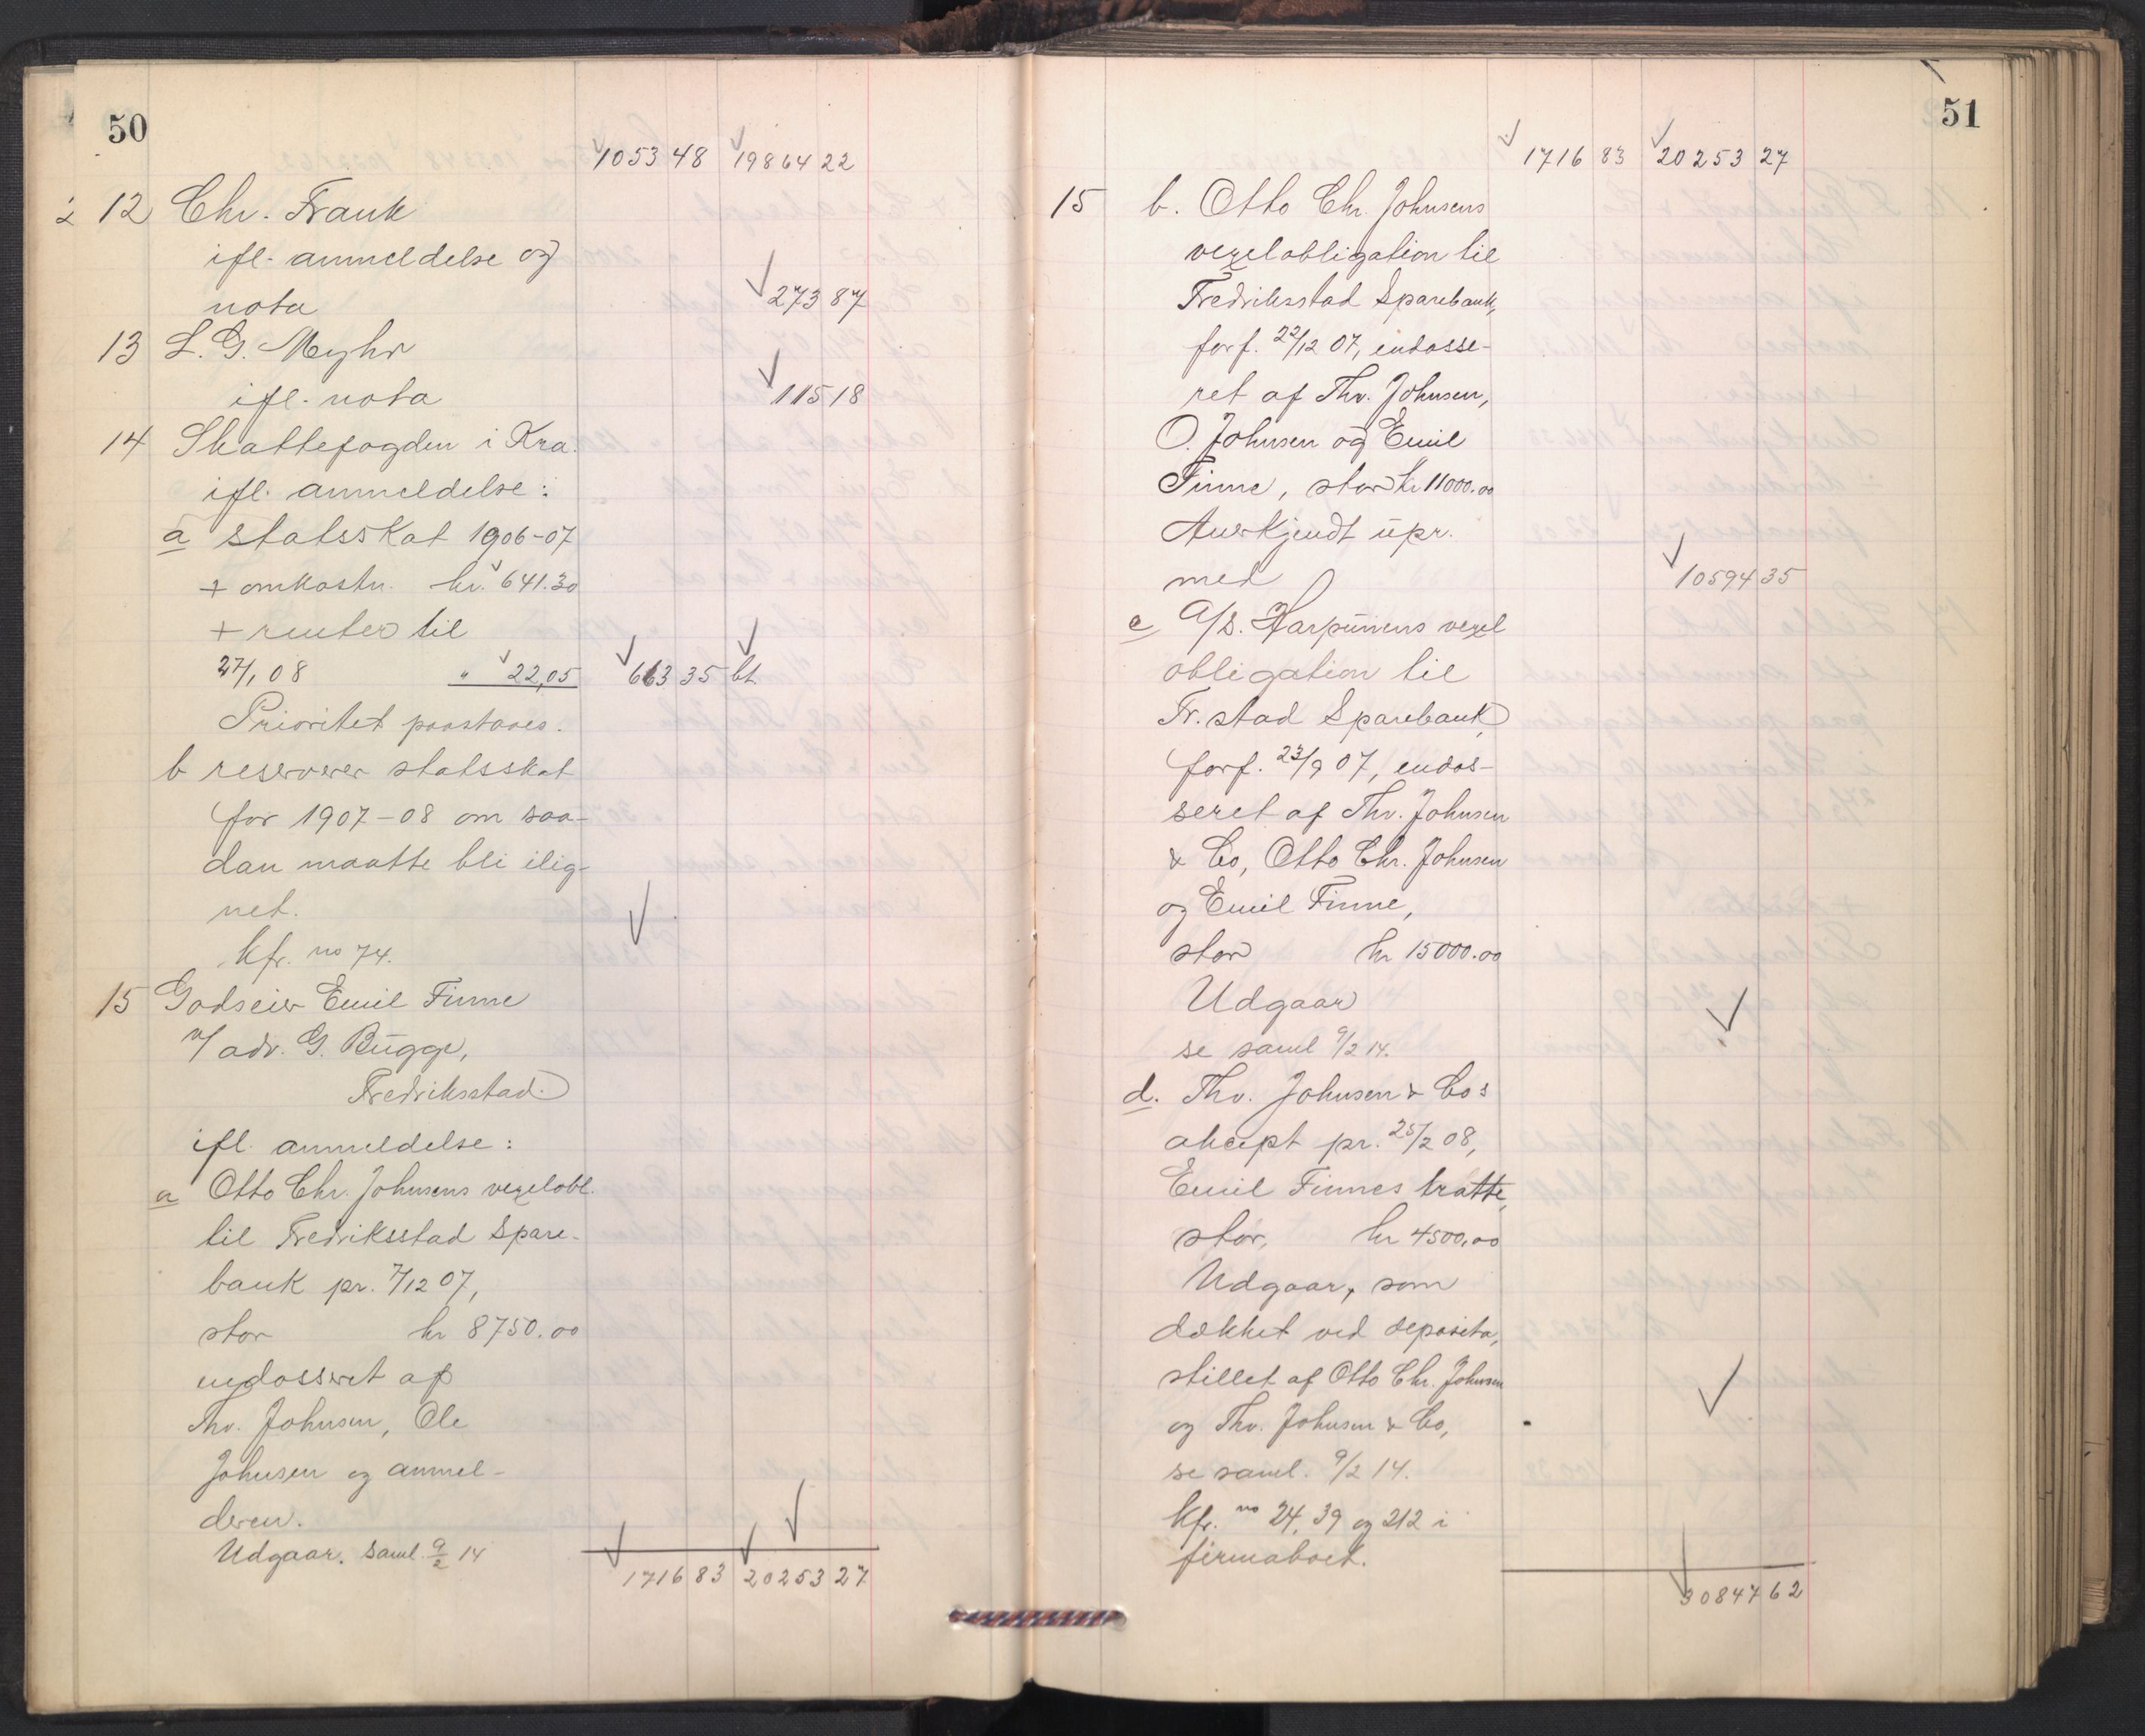 50
1053 48 19864 22
12 Chr. Frank
ifl. anmeldelse og
nota 273 87
13 L. G. Myhr
ifl. nota 115 18
14 Skattefogden i Kra.
ifl. anmeldelse:
a statsskat 1906-07
+ omkostn. kr. 641.30
+ renter til
27/1 08 " 22,05 663 35 bt.
Prioritet paastaaes.
b reserverer statsskat
for 1907-08 om saa-
dan maatte bli ilig-
net.
kfr. no 74.
15 Godseier Emil Finne
v/ adv. G. Bugge,
Fredriksstad.
ifl. anmeldelse:
a Otto Chr. Johnsens vexelobl.
til Fredriksstad Spare-
bank pr. 7/12 07,
stor kr 8750.00
endosseret af
Thv. Johnsen, Ole
Johnsen og anmel-
deren.
Udgaar. saml. 9/2 14
1716 83 20253 27
51
1716 83 20253 27
15 b. Otto Chr. Johnsens
vexelobligation til
Fredriksstad Sparebank,
forf. 22/12 07, endosse-
ret af Thv. Johnsen,
O. Johnsen og Emil
Finne, stor kr 11000.00
Anerkjendt upr.
med 10594 35
c A/S. Harpunens vexel
obligation til
Fr.stad Sparebank,
forf. 23/9 07, endos-
seret af Thv. Johnsen
& Co, Otto Chr. Johnsen
og Emil Finne,
stor kr 15000.00
Udgaar
se saml 9/2 14.
d. Thv. Johnsen & Cos
akcept pr. 25/2 08,
Emil Finnes tratte,
stor, kr 4500,00
Udgaar, som
dækket ved deposita,
stillet af Otto Chr. Johnsen
og Thv. Johnsen & Co,
se saml. 9/2 14.
kfr. no 24, 39 og 212 i
firmaboet.
30847 62